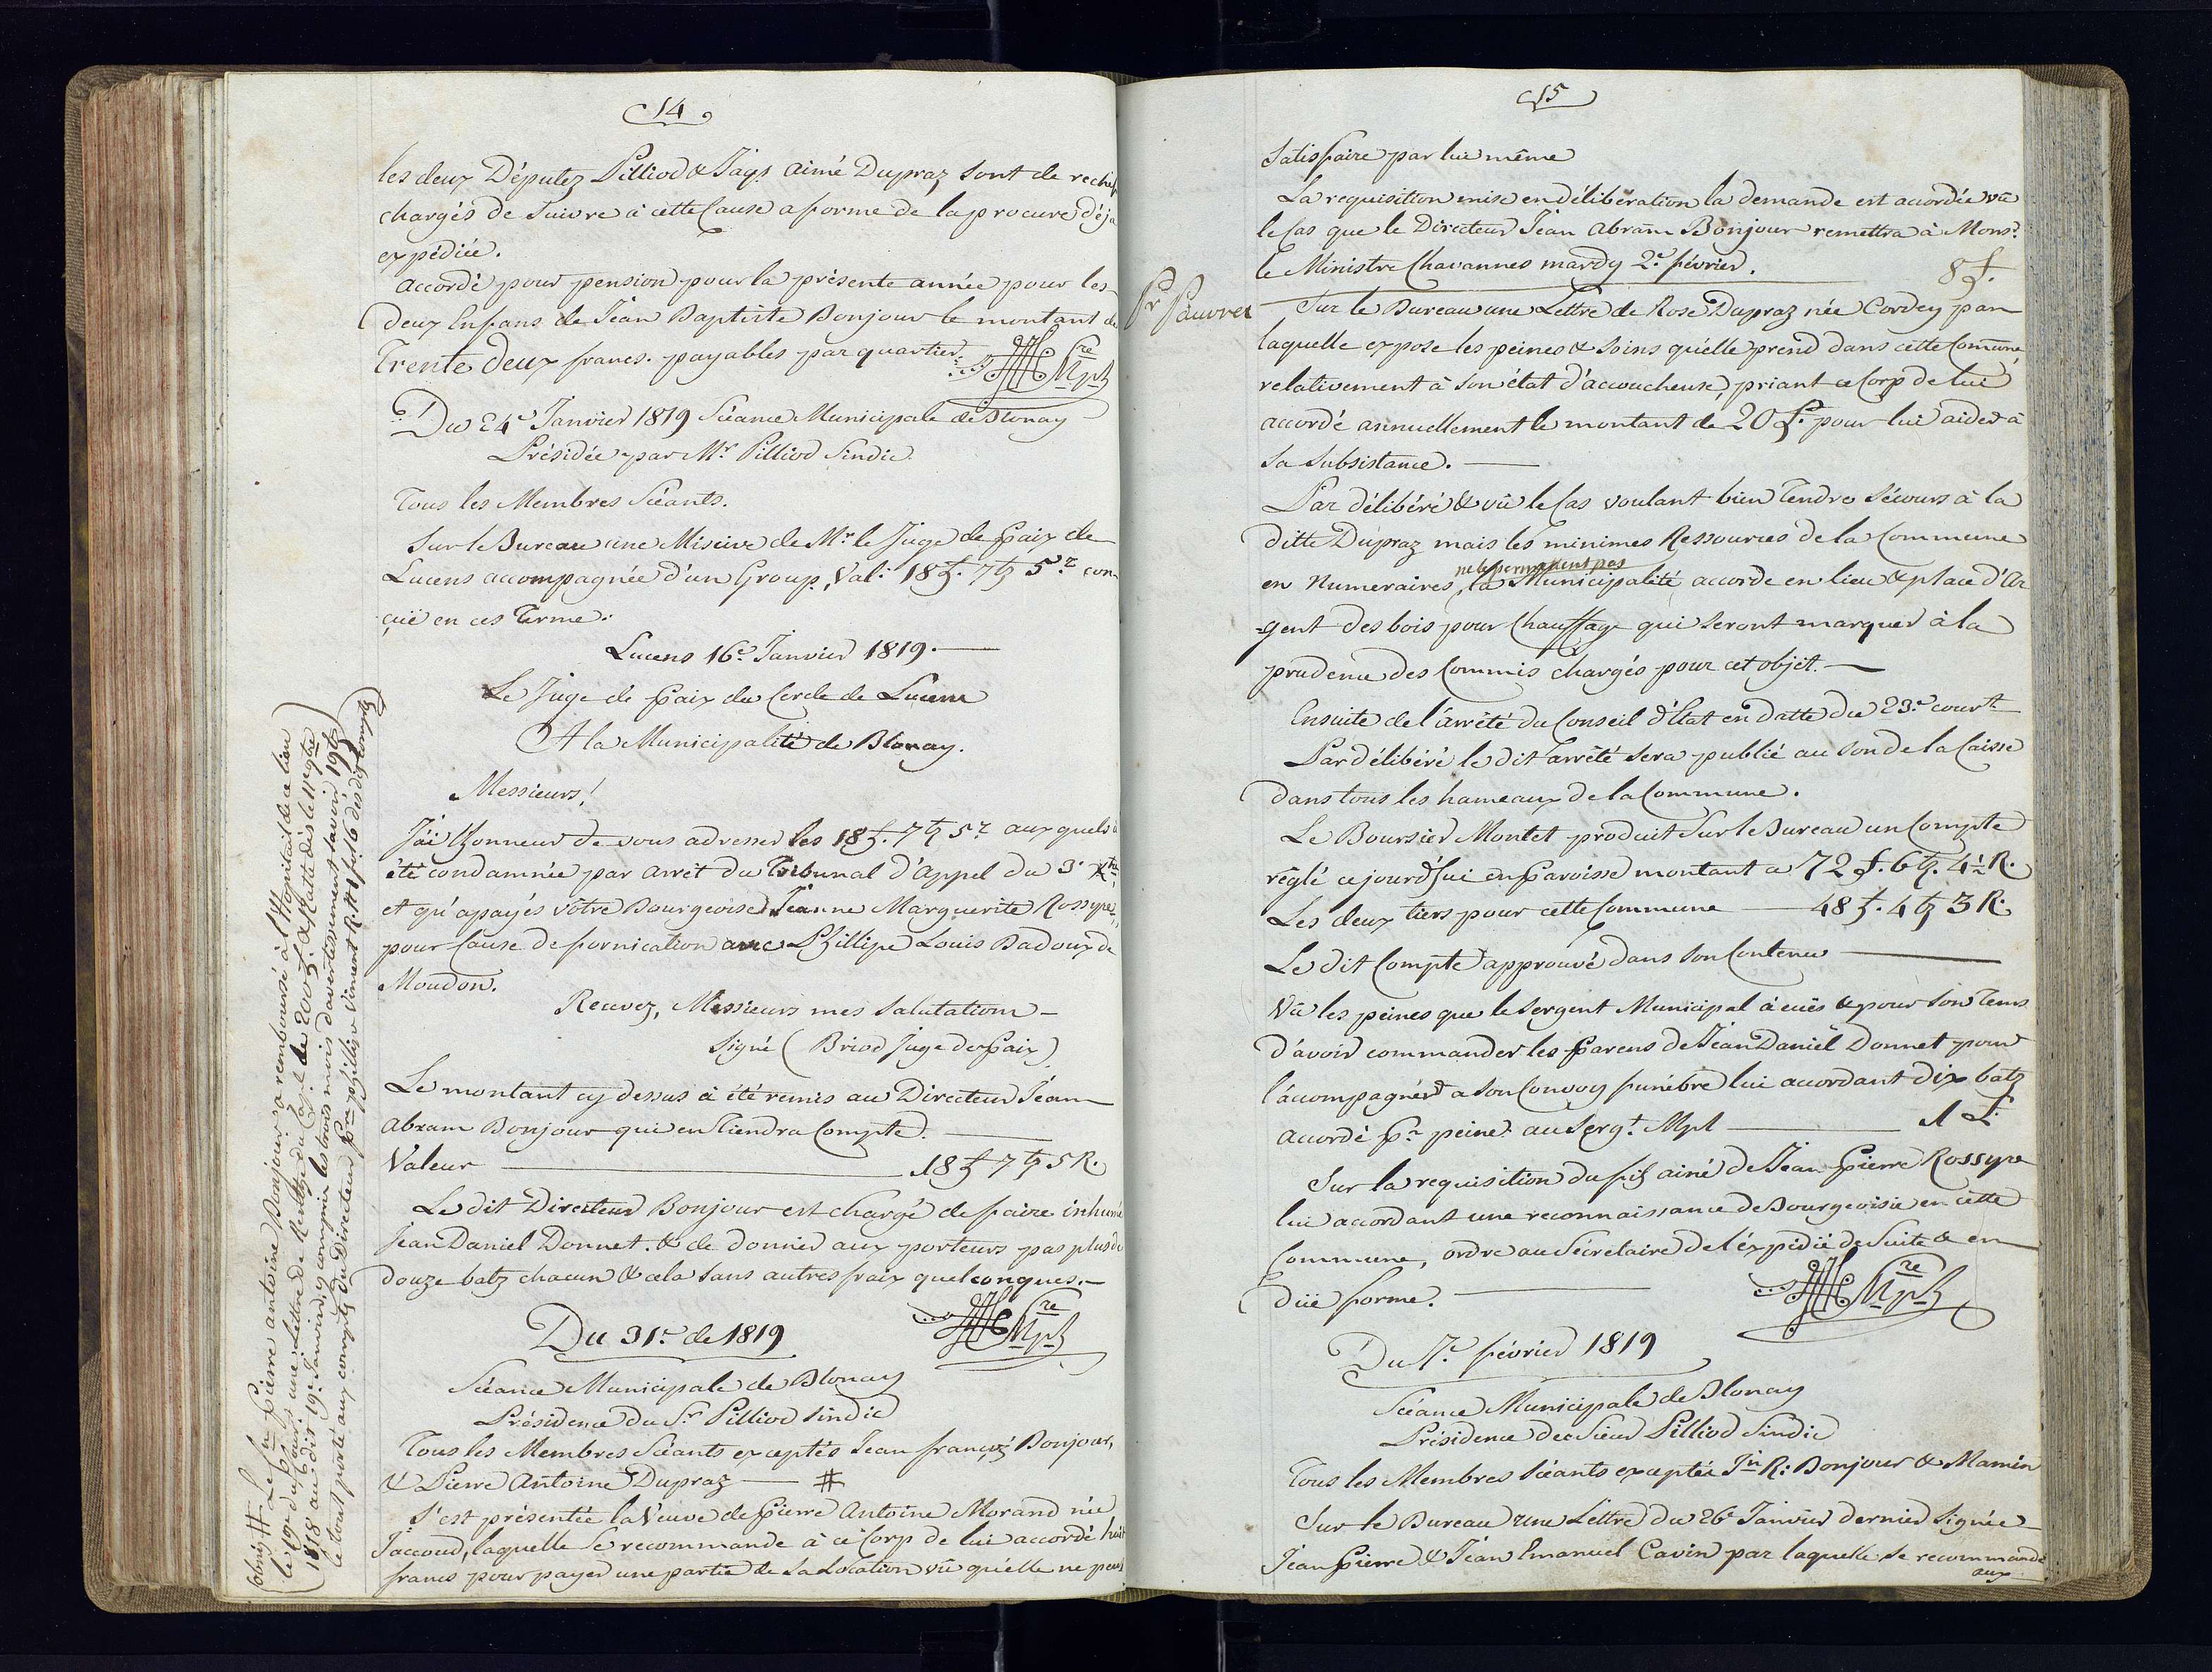 14
les deux Députez Pilliod & Jaqs. aimé Dupraz sont de rechef
chargés de suivre à cette Cause a forme de la procure déja
expédiée.
accordé pour pension pour la présente année pour les
deux Enfans de Jean Baptiste Bonjour le montant de
Trente deux francs. payables par quartier.
Du 24e Janvier 1819 Séance Municipale de Blonay
Présidée par Mr Pilliod Sindic
Tous les Membres Séants.
Sur le Bureau une Miscive de Mr le Juge de paix de
Lucens accompagnée d'un Group, Val: 18 f. 7 bz 5 r con-
çüe en ces terme:
Lucens 16e Janvier 1819.
Le Juge de paix du Cercle de Lucens
A la Municipalité de Blonay.
Messieurs!
J'ai l'honneur de vous adresser les 18 f. 7 bz 5 r aux quels à
été condamnée par arrêt du Tribunal d'Appel du 3e Xbre
et qu'a payés vôtre Bourgeoise Jeanne Marguerite Rossyre,
pour Cause de fornication avec Phillipe Louis Badoux de
Moudon.
Recevez, Messieurs mes Salutations
Signé (Briod Juge de paix)
Le montant cy dessus à été remis au Directeur Jéan
Abram Bonjour qui en tiendra Compte.
Valeur 18 f 7 bz 5 R.
Le dit Directeur Bonjour est chargé de faire inhumé
Jean Daniel Donnet. & de donner aux porteurs pas plus de
douze batz chacun & cela sans autres fraix quelconques.
Du 31e de 1819
Séance Municipale de Blonay
Présidence du Sr Pilliod Sindic
Tous les Membres Séants exceptés Jean françs Bonjour,
& Pierre Antoine Dupraz #
S'est présentée la Veuve de Pierre Antoine Morand née
Jaccoud, laquelle se recommande à ce Corp de lui accordé huit
francs pour payer une partie de sa Location vû qu'elle ne peut
# Le Sr Pierre antoine Bonjour a remboursé à l'Hopital de ce lieu
le 19e du
1818 au dit 19e Janvier, y compris les trois mois d'avertissement savoir 19 bz
le tout porté aux compte du Directeur
15
Satisfaire par lui même
La requisitton mise en délibération la demande est accordée vû
le Cas que le Directeur Jéan Abram Bonjour remettra à Monsr
le Ministre Chavannes mardy 2e février. 8 f.
Pr Pauvres
Sur le Bureau une Lettre de Rose Dupraz née Cordey par
laquelle expose les peines & soins qu'elle prend dans cette Comune,
relativement à son état d'accoucheuse, priant ce Corp de lui
accordé annuellement le montant de 20 f. pour lui aider à
sa subsistance.
Par délibéré & vû le Cas voulant bien tendre sécours à la
ditte Dupraz mais les minimes Ressources de la Commune
ne le permettent pas
en Numeraires, la Municipalité accorde en lieu & place d'Ar
=gent des bois pour Chauffage qui seront marquer à la
prudence des Commis chargés pour cet objêt.
Ensuite de l'arrêté du Conseil d'Etat en datte du 23e courrt
Par délibéré le dit arrêté sera publié au son de la Caisse
dans tous les hameaux de la Commune.
Le Boursier Montet produit sur le Bureau un Compte
réglé ce jourd'hui en Paroisse montant a 72 f. 6 bz. 4½ R.
Les deux tiers pour cette Commune 48 f. 4 bz 3 R.
Le dit Compte approuvé dans son Contenu
Vû les peines que le Sergent Municipal à eües & pour son tems
d'avoir commander les Parens de Jéan Daniel Donnet pour
l'accompagner a son Convoy funébre lui accordant dix batz
accordé pr peine au Sergt Mpl 1 f.
Sur la requisition du fils ainé de Jean Pierre Rossyre
lui accordant une reconnaissance de Bourgeoisie en cette
Commune, ordre au Sécretaire de l'éxpidié de suite & en
düe forme.
Du 7e février 1819
Séance Municipale de Blonay
Présidence du Sieur Pilliod Sindic
Tous les Membres Séants exceptés Jn R: Bonjour & Mamin
Sur le Bureau une Lettre du 26e Janvier dernier signée
Jean Pierre & Jéan Emanuel Cavin par laquelle se recommande
aux